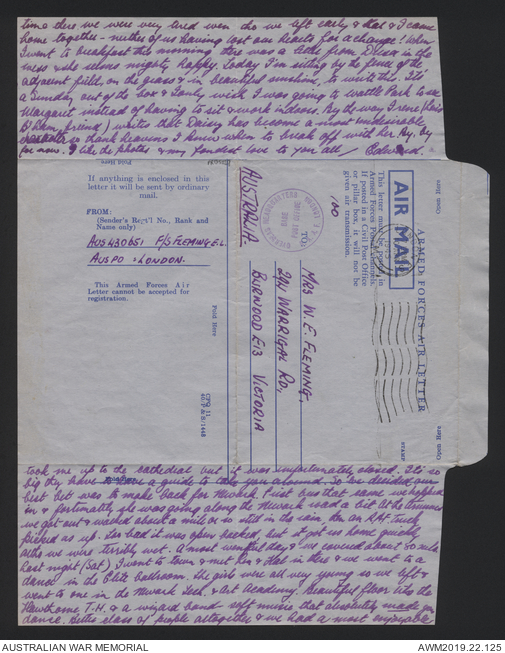 time there we were very tired when do we left early & Hal & I came
home together - neither of us having lost our hearts for a change! When
I went to breakfast this morning there was a letter from Dulcie in the
mess & she seems mighty happy. Today I'm sitting by the fence of the
adjacent field, on the grass & in beautiful sunshine, to write this. It's
a Sunday out of the box & I only wish I was going to Wattle Park to see
Margaret instead of having to sit & work indoors. By the way Irene (Lois
B'Ham friend) writes that Daisy has become a most undesirable
character so thank heavens I knew when to break off with her. By. by
for now. I like the photos & my fondest love to you all / Edward.
Fold Here
If anything is enclosed in this
letter it will be sent by ordinary
mail.
FROM:
(Sender's Regt'l No., Rank and
Name only)
AUS430651 F/S FLEMING E.L.
AUSPO: LONDON.
This Armed Forces Air
Letter cannot be accepted for
registration.
Fold Here
Open Here
ARMED FORCES AIR LETTER
AIR MAIL
STAMP
This letter must be posted in
Armed Forces Post Channels.
If posted in a Civil Post Office
or pillar box, it will not be
given air transmission.
TO:
OVERSEAS HEADQUARTERS
MRS W. E. FLEMING.
241 WARRIGAL RD,
BURWOOD E13 VICTORIA
AUSTRALIA.
Open Here
took me up to the cathedral but it was unfortunately closed. It's so
big they have a guide to take you around. So we decided our
best bet was to make back for Newark. First bus that came we hopped
in & fortunately she was going along the Newark road a bit. At the terminus
we got out & walked about a mile or so still in the rain, then an RAF truck
picked us up. Too bad it was open backed, but it got us home quickly
altho we were terribly wet. A most eventful day & we covered about 50 mls
Last night (Sat) I went to town & met Ken & Hal in there & we went to a
dance in the Elite Ballroom. The girls were all very young so we left &
went to one in the Newark Tech. & Art Academy. Beautiful floor like the
Hawthorne T.H. & a wizard band - soft music that absolutely made you
dance. Better class of people altogether & we had a most enjoyable
AUSTRALIAN WAR MEMORIAL
AWM2019.22.125